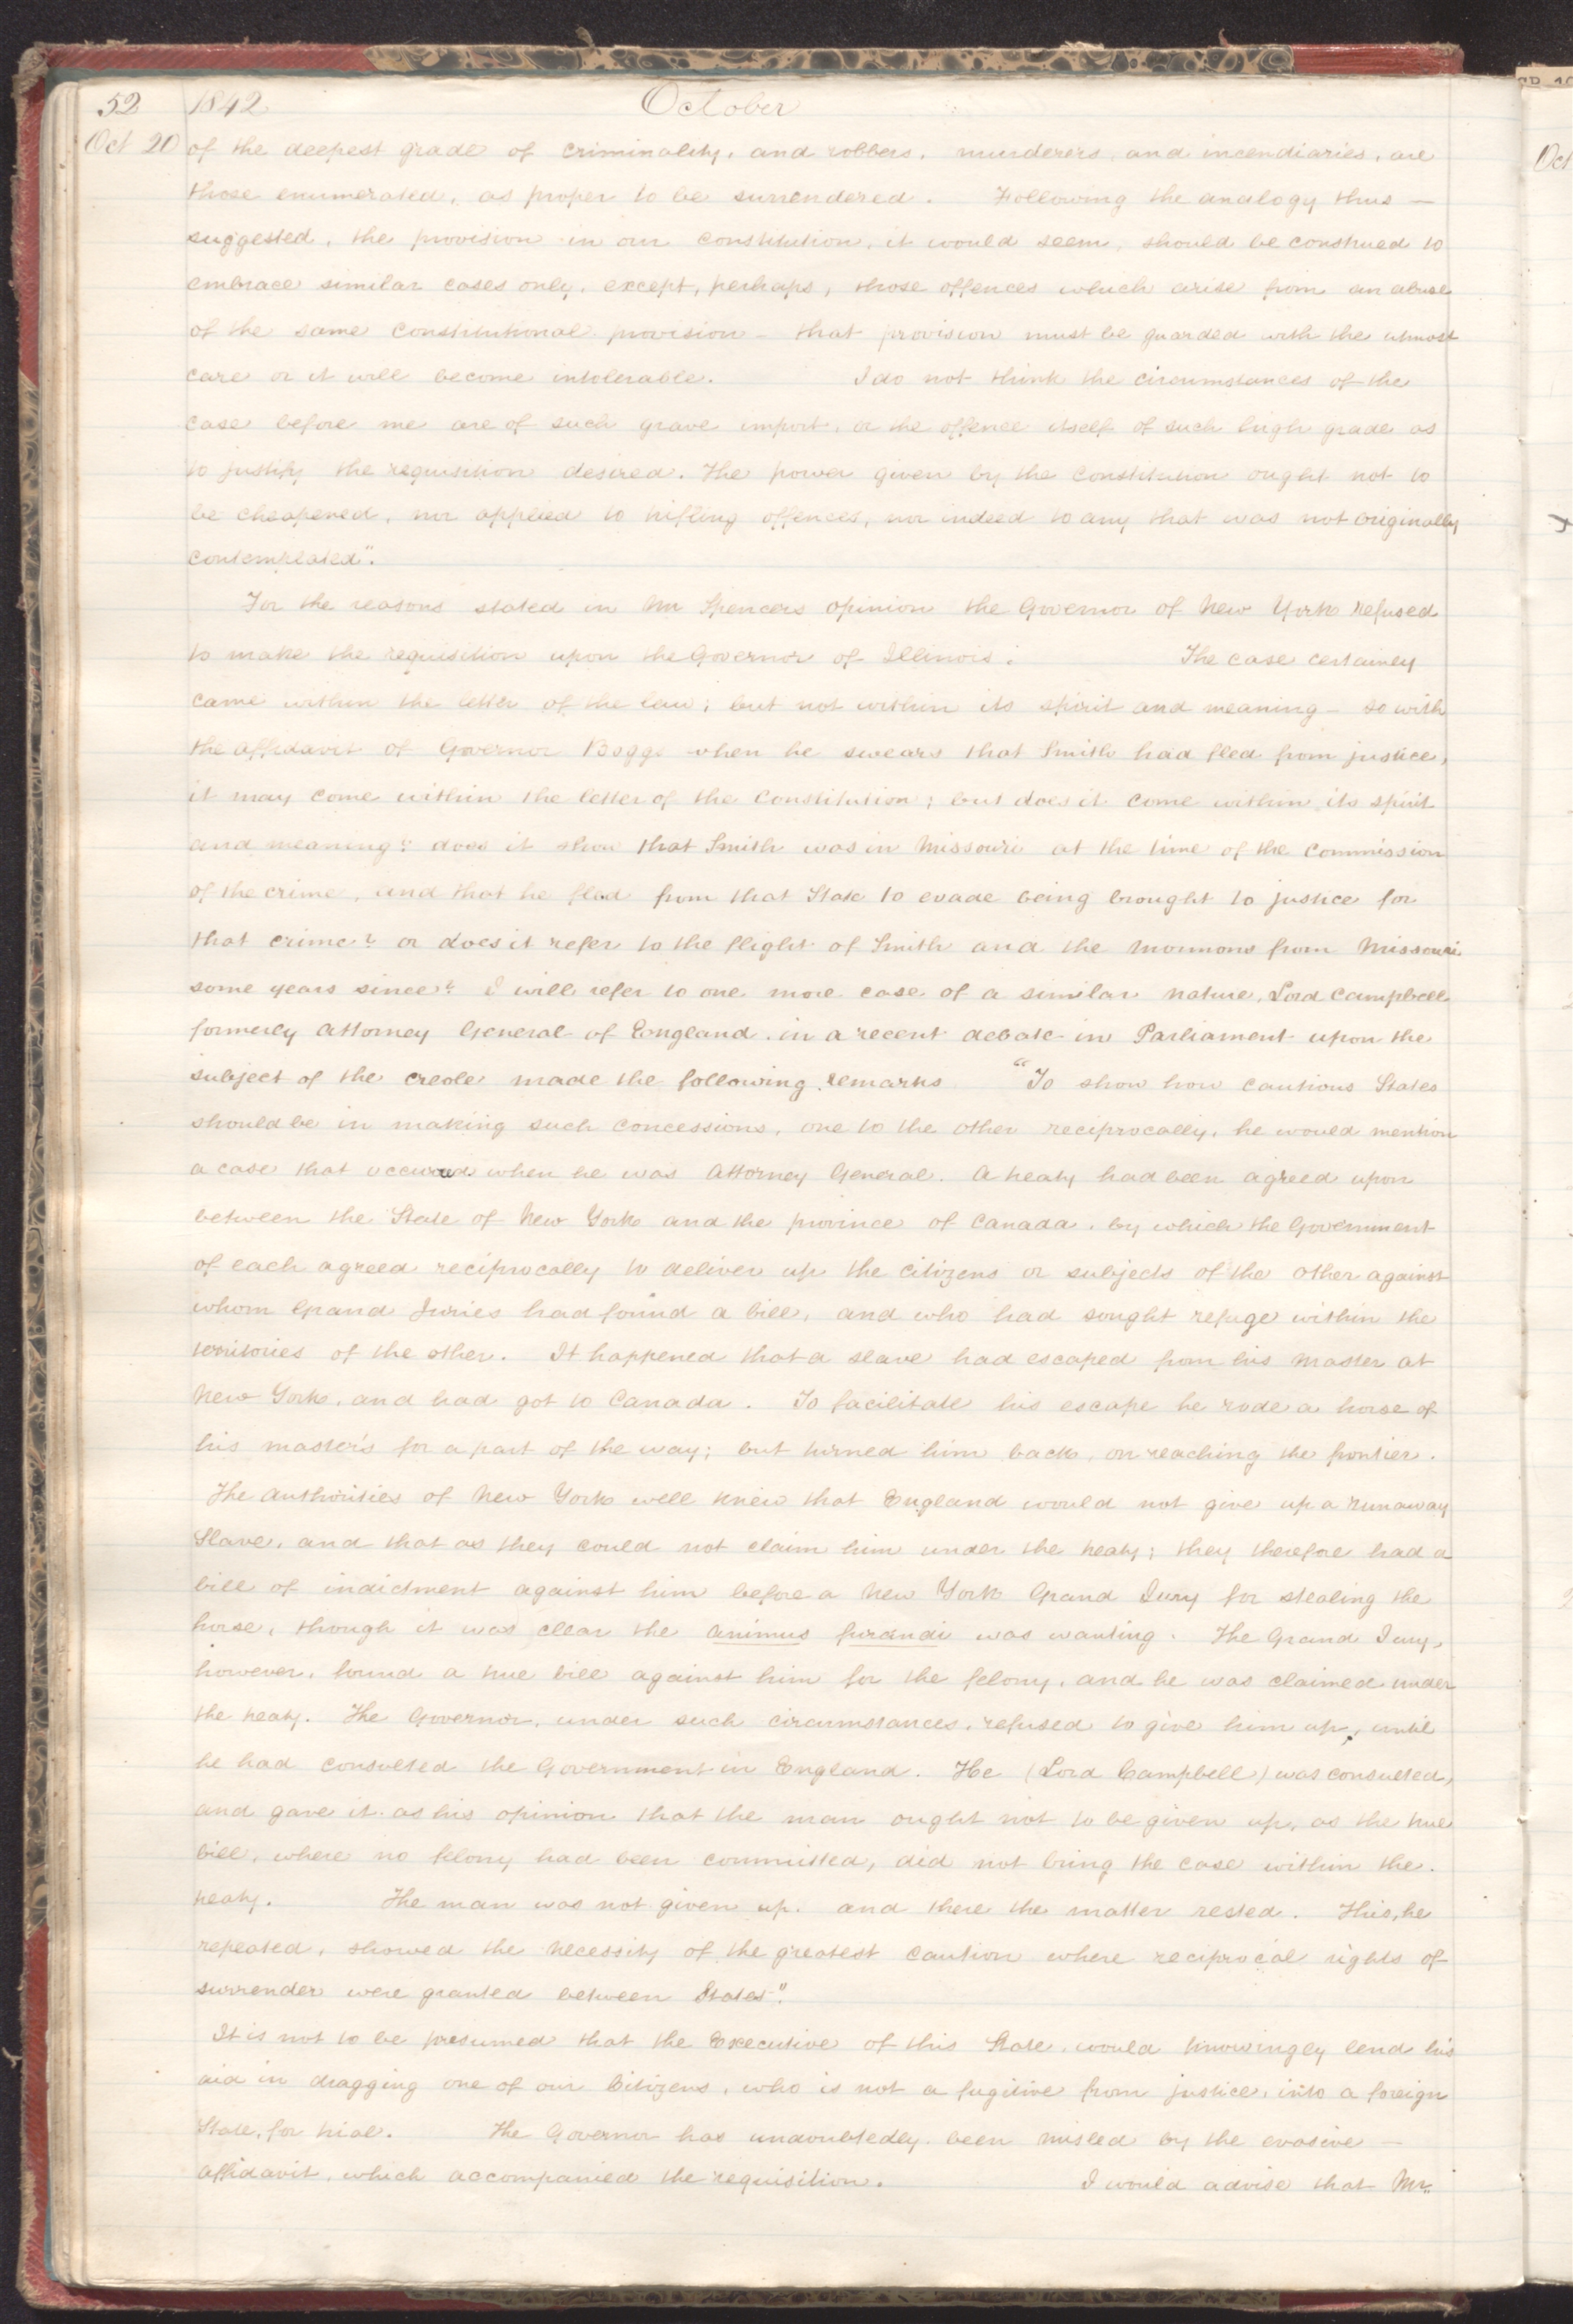 52 1842 October
Oct 20 of the deepest grade of criminality, and robbers, murderers, and incendiaries, are
those enumerated, as proper to be surrendered. Following the analogy thus —
suggested, the provision in our constitution, it would seem, should be construed to
embrace similar cases only, except, perhaps, those offences which arise from an abuse
of the same constitutional provision — that provision must be guarded with the utmost
care or it will become intolerable. I do not think the circumstances of the
case before me are of such grave import, or the offence itself of such high grade as
to justify the requisition desired. The power given by the constitution ought not to
be cheapened, nor applied to trifling offences, nor indeed to any that was not originally
contemplated".
For the reasons stated in Mr Spencers opinion the Governor of New York refused
to make the requisition upon the Governor of Illinois. The case certainly
came within the letter of the law; but not within its spirit and meaning — so with
the affidavit of Governor Boggs when he swears that Smith had fled from justice,
it may come within the letter of the Constitution; but does it come within its spirit
and meaning? does it show that Smith was in Missouri at the time of the commission
of the crime, and that he fled from that State to evade being brought to justice for
that crime? or does it refer to the flight of Smith and the Mormons from Missouri
some years since? I will refer to one more case of a similar nature, Lord Campbell
formerly Attorney General of England, in a recent debate in Parliament upon the
subject of the creole made the following remarks "To show how cautious States
should be in making such concessions, one to the other reciprocally, he would mention
a case that occurred when he was Attorney General. A treaty had been agreed upon
between the State of New York and the province of Canada, by which the Government
of each agreed reciprocally to deliver up the citizens or subjects of the other against
whom Grand Juries had found a bill, and who had sought refuge within the
territories of the other. It happened that a slave had escaped from his Master at
New York, and had got to Canada. To facilitate his escape he rode a horse of
his master's for a part of the way; but turned him back, on reaching the frontier.
The authorities of New York well knew that England would not give up a runaway
Slave, and that as they could not claim him under the treaty; they therefore had a
bill of indictment against him before a New York Grand Jury for stealing the
horse, though it was clear the animus furandi was wanting. The Grand Jury,
however, found a true bill against him for the felony, and he was claimed under
the treaty. The Governor, under such circumstances, refused to give him up, until
he had consulted the Government in England. He (Lord Campbell) was consulted,
and gave it as his opinion that the man ought not to be given up, as the true
bill, where no felony had been committed, did not bring the case within the
treaty. The man was not given up, and there the matter rested. This, he
repeated, showed the necessity of the greatest caution where reciprocal rights of
surrender were granted between States".
It is not to be presumed that the Executive of this State, would knowingly lend his
aid in dragging one of our Citizens, who is not a fugitive from justice, into a foreign
State, for trial. The Governor has undoubtedly been misled by the evasive —
affidavit, which accompanied the requisition. I would advise that Mr.
Oct